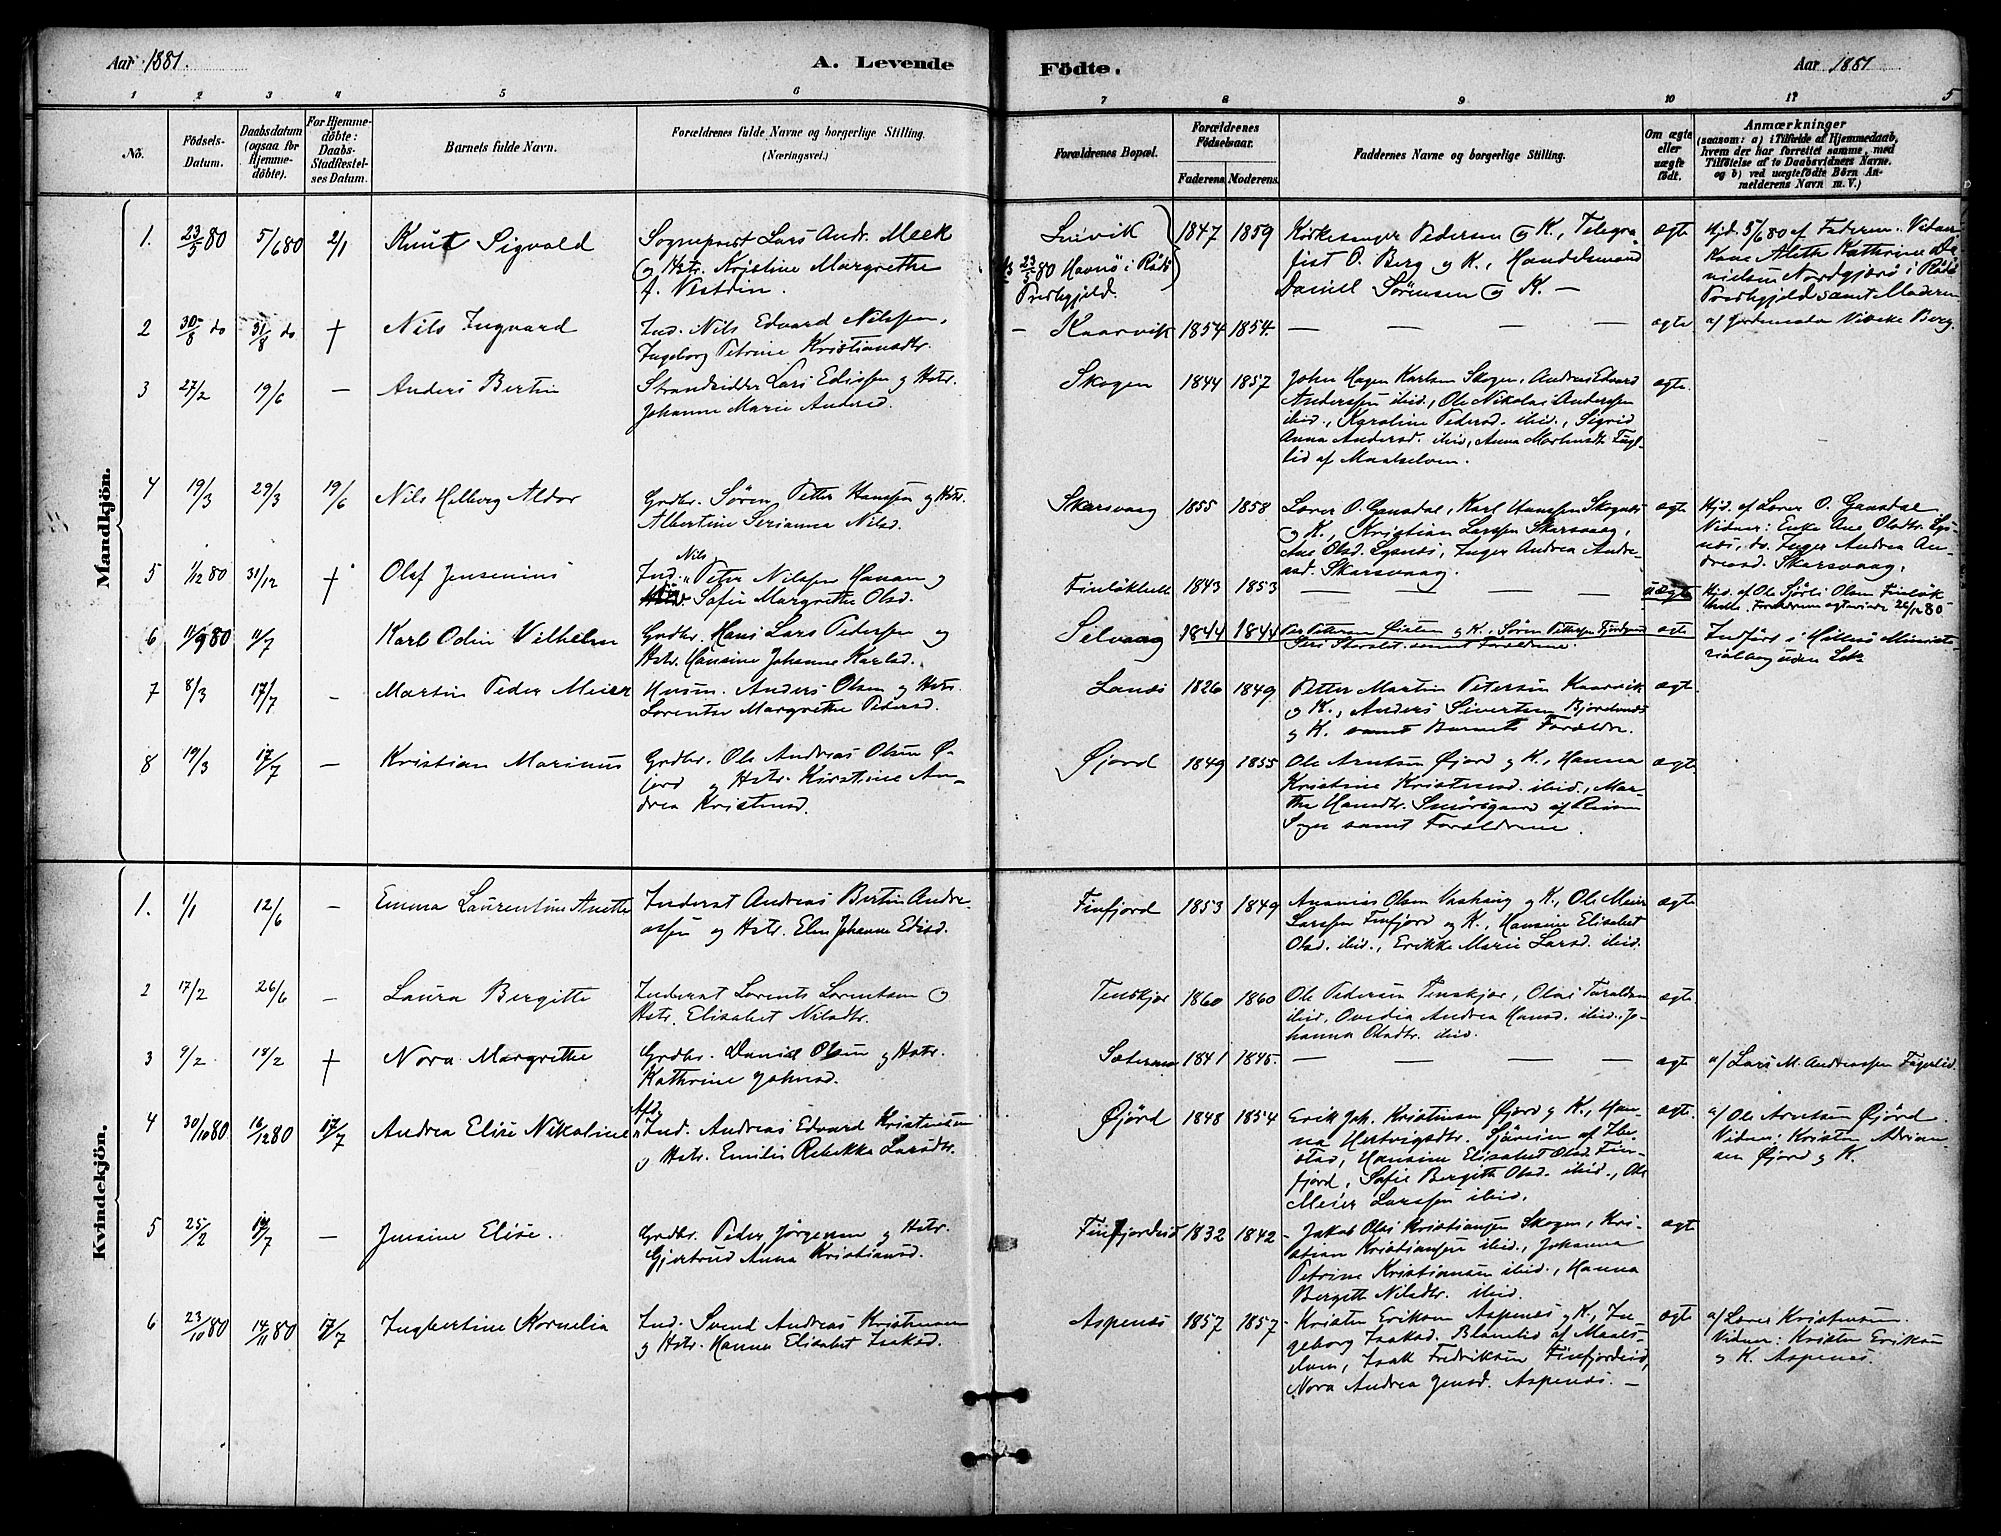 Aar 1881.
A. Levende Födte.
Aar 1881
5
1 2 3 4 5 6 7 8 9 10 11
Nö.
Födsels-
Datum.
Daabsdatum
(ogsaa for
Hjemme-
döbte).
For Hjemme-
döbte:
Daabs-
Stadfæstel-
ses Datum.
Barnets fulde Navn.
Forældrenes fulde Navne og borgerlige Stilling.
(Næringsvei.)
Forældrenes Bopæl.
Forældrenes
Födselsaar.
Faderens. Moderens.
Faddernes Navne og borgerlige Stilling.
Om ægte
eller
uægte
født.
Anmærkninger
(saasom: a) i Tilfælde af Hjemmedaab,
hvem der har forrettet samme, med
Tilføielse af to Daabsvidners Navne.
og b) ved uægtefødte Börn An-
melderens Navn m. V.)
Mandkjön.
1. 23/5 80 5/6 80 2/1 Knut Sigvald
Sogneprest Lars Andr. Meek
og Hstr. Kristine Margrethe
f. Vestdin.
23/5 80 Havnö i Rödö
Prestegjeld.
1847 1859
Kirkesanger Pedersen og K., Telegra-
fist O. Berg og K., Handelsmand
Daniel Sörensen og K. —
ægte
Hjd. 5/6 80 af Faderen. Vidner
Kone Aleth Kathrine Da-
nielsen Nordgjerö i Rödö
Prestegjeld samt Moderen
2 30/8 do 31/8 do † Nils Ingvard
Ind. Nils Edvard Nilssen,
Ingeborg Petrine Kristiansdtr.
— Kaarvik 1854 1854. — — — — ægte
af Jordemoder Vibeke Berg.
3 27/2 19/6 — Anders Bertin
Strandsidder Lars Edissen og Hstr.
Johanne Marie Andersd.
Skogen 1844 1857
John Hagen Karlsen Skogen, Andreas Edvard
Anderssen ibid., Ole Nikolai Anderssen
ibid., Karoline Pedersd. ibid., Sigrid
Anna Andersd. ibid, Anna Mortensdtr. Fugl-
lid af Maalselven.
ægte.
4 19/3 29/3 19/6 Nils Holberg Aldor
Grdbr. Sören Petter Hanssen og Hstr.
Albertine Serianna Nilsd.
Skarsvaag 1855 1858
Lorer O. Gausdal, Karl Hanssen Skognes
og K., Kristian Larssen Skarsvaag,
Ane Olsd. Lysnes, Inger Andrea Andre-
asd. Skarsvaag.
ægte
Hjd. af Lorer O. Gausdal.
Vidner: Enke Ane Olsdtr. Lys-
nes, do. Inger Andrea An-
dreasd. Skarsvaag.
5 1/12 80 31/12 † Olaf Jensenius
Ind. Nils Peter Nilssen Hansen og
Sofie Margrethe Olsd.
1843 1853 — — — — uægte
Hjd. af Ole Sjörli Olsen
Forældrene ægteviede 26/12 80
6 11/9 80 11/7 Karl Odin Vilhelm
Grdbr. Hans Lars Pedersen og
Hstr. Hansine Johanne Karlsd.
Selvaag 1844 1844
ægte
Indförs i Hillesö Ministe-
rialbog uden
7 8/3 17/7 — Martin Peder Meier
Husm. Anders Olsen og Hstr.
Lorentse Margrethe Pedersd.
Lanes 1826 1849
Petter Martin Petersen Kaarvik
og K., Anders Sivertsen Bjorelvnes
og K. samt Barnets Forældre.
ægte
8 19/3 17/7 — Kristian Marinus
Grdbr. Ole Andreas Olsen Ö-
jord og Hstr. Kirstine An-
drea Kristensd.
Øjord 1849 1855
Ole Arntsen Øjord og K., Hanna
Kristine Kristensd. ibid., Mar-
the Hansdtr. Smörsgaard af
Sogn samt Forældrene.
ægte
Kvindekjön.
1. 1/1 12/6 — Emma Laurentine Anette
Inderst Andreas Bertin Andre-
assen og Hstr. Elen Johanne Edisd.
Finfjord 1853 1849
Ananias Olsen Vashaug og K., Ole Meier
Larssen Finfjord og K., Hansine Elisabet
Olsd. ibid., Erikke Marie Larsd. ibid.
ægte
2 17/2 26/6 — Laura Bergitte
Inderst Lorents Lorentsen og
Hstr. Elisabet Nilsdtr.
Tenskjær 1860 1860
Ole Pedersen Tenskjær, Olai Taraldsen
ibid, Ovedia Andrea Hansd. ibid., Jo-
hanna Olsdtr. ibid.
ægte
3 9/2 18/2 † Nora Margrethe
Grdbr. Daniel Olsen og Hstr.
Kathrine Johnsd.
1841 1845. — — — — ægte
af Lars M. Andreassen Fagerlid.
4 30/10 80 16/12 80 17/7 Andrea Elise Nikoline
Afdg.
Ind. Andreas Edvard Kristensen
og Hstr. Emilie Rebekka Larsdtr.
Øjörd 1848 1854
Erik Joh. Kristensen Øjord og K., Han-
na Hertvigsdtr. Sjöveien af Ibe-
stad, Hansine Elisabet Olsd. Fin-
fjord, Sofie Bergith Olsd. ibid., Ole
Meier Larssen ibid.
ægte.
af Ole Arntsen Øjörd
Vidner: Kristen Adrian-
sen Øjord og K.
5 25/2 17/7 — Jensine Elise.
Grdbr. Peder Jörgensen og Hstr.
Gjertrud Anna Kristiansd.
Finfjordeid 1832 1842
Jakob Olai Kristiansen Skogen, Kri-
stian Kristiansen ibid., Johanna
Petrine Kristiansen ibid., Hanna
Bergith Nilsdtr. ibid.
ægte
6 23/10 80 14/11 80 17/7 Ingbertine Kornelia
Ind. Svend Andreas Kristensen
og Hstr. Hanna Elisabet Isaksd.
Aspenes 1857 1857
Kristen Eriksen Aspenes og K., In-
geborg Isaksd. Blaalid af Maals-
elven, Isak Fredriksen Finfjordeid,
Nora Andrea Jensd. Aspenes. —
ægte
af Lorer Kristensen.
Vidner: Kristen Eriksen
og K. Aspenes.